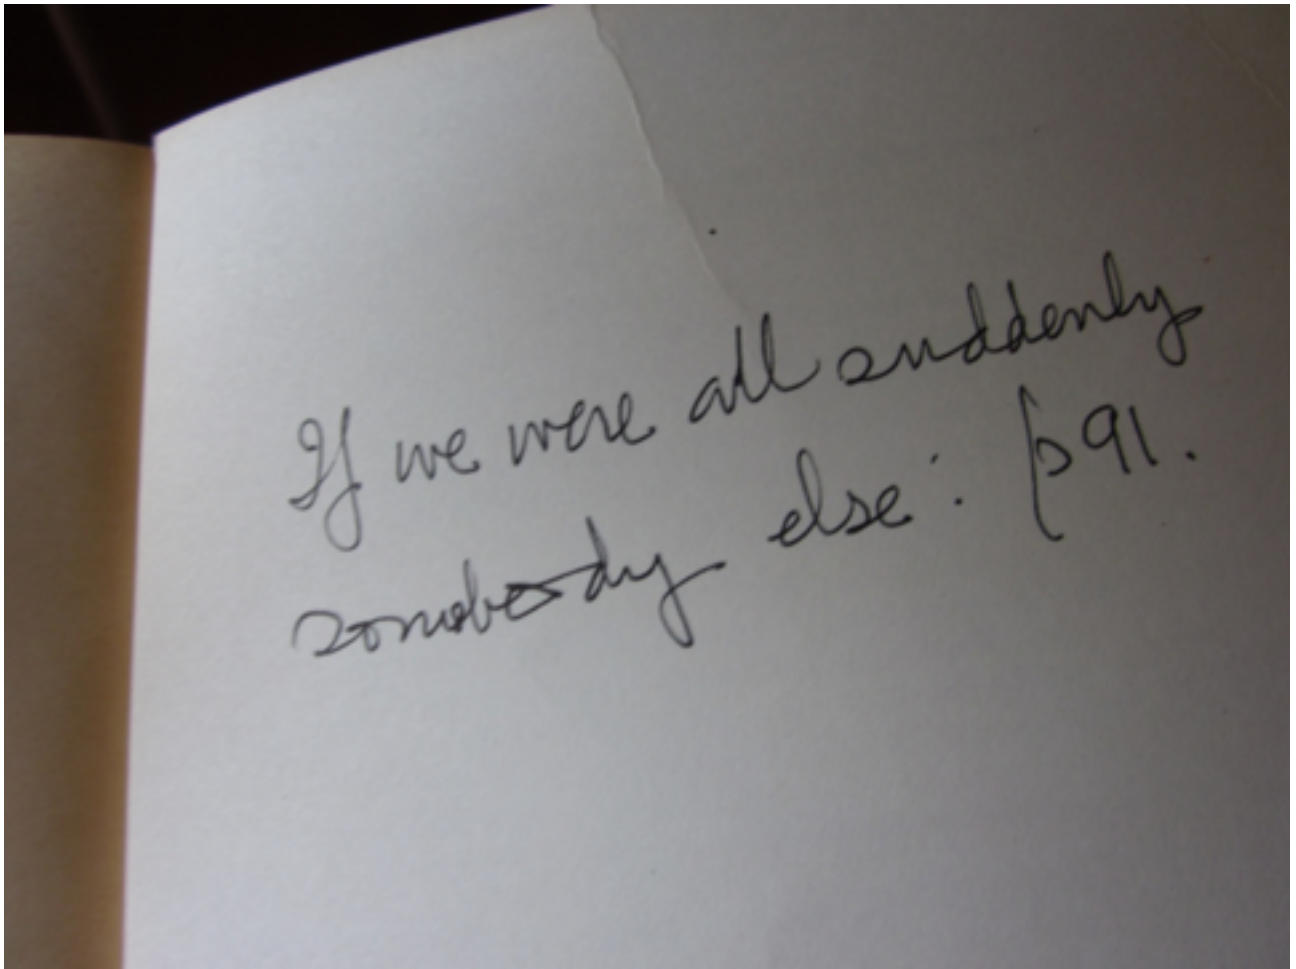 If we were all suddenly
somebody else: p91.